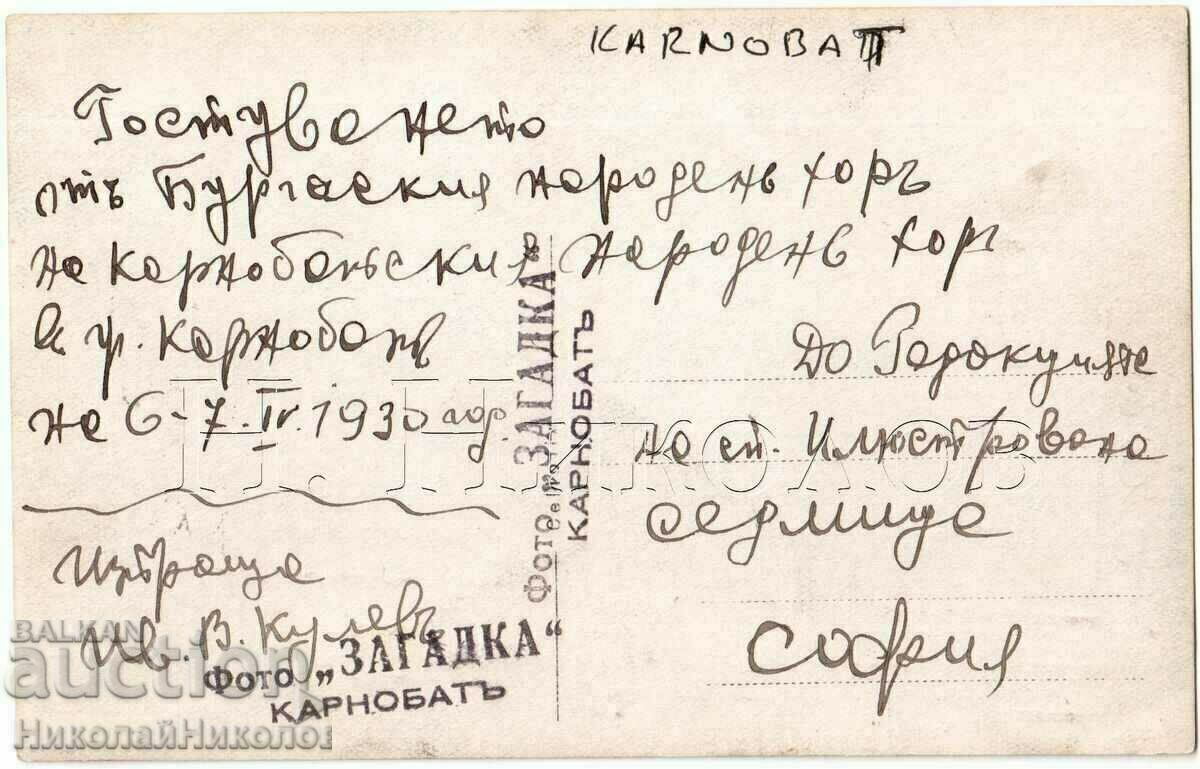 KARNOBAT
Гостуването
отъ Бургаския народенъ хоръ
на Карнобатския народенъ хор
в гр. Карнобатъ
на 6-7.IV.1930 год
Изпраща
Ив. В. Кулевъ
Фото „ЗАГАДКА“
КАРНОБАТЪ
Фото „ЗАГАДКА“
КАРНОБАТЪ
До Редакцията
на сп. Илюстрована
седмица
СОФИЯ
Н. НИКОЛОВ
BALKAN
auction
НиколайНиколов